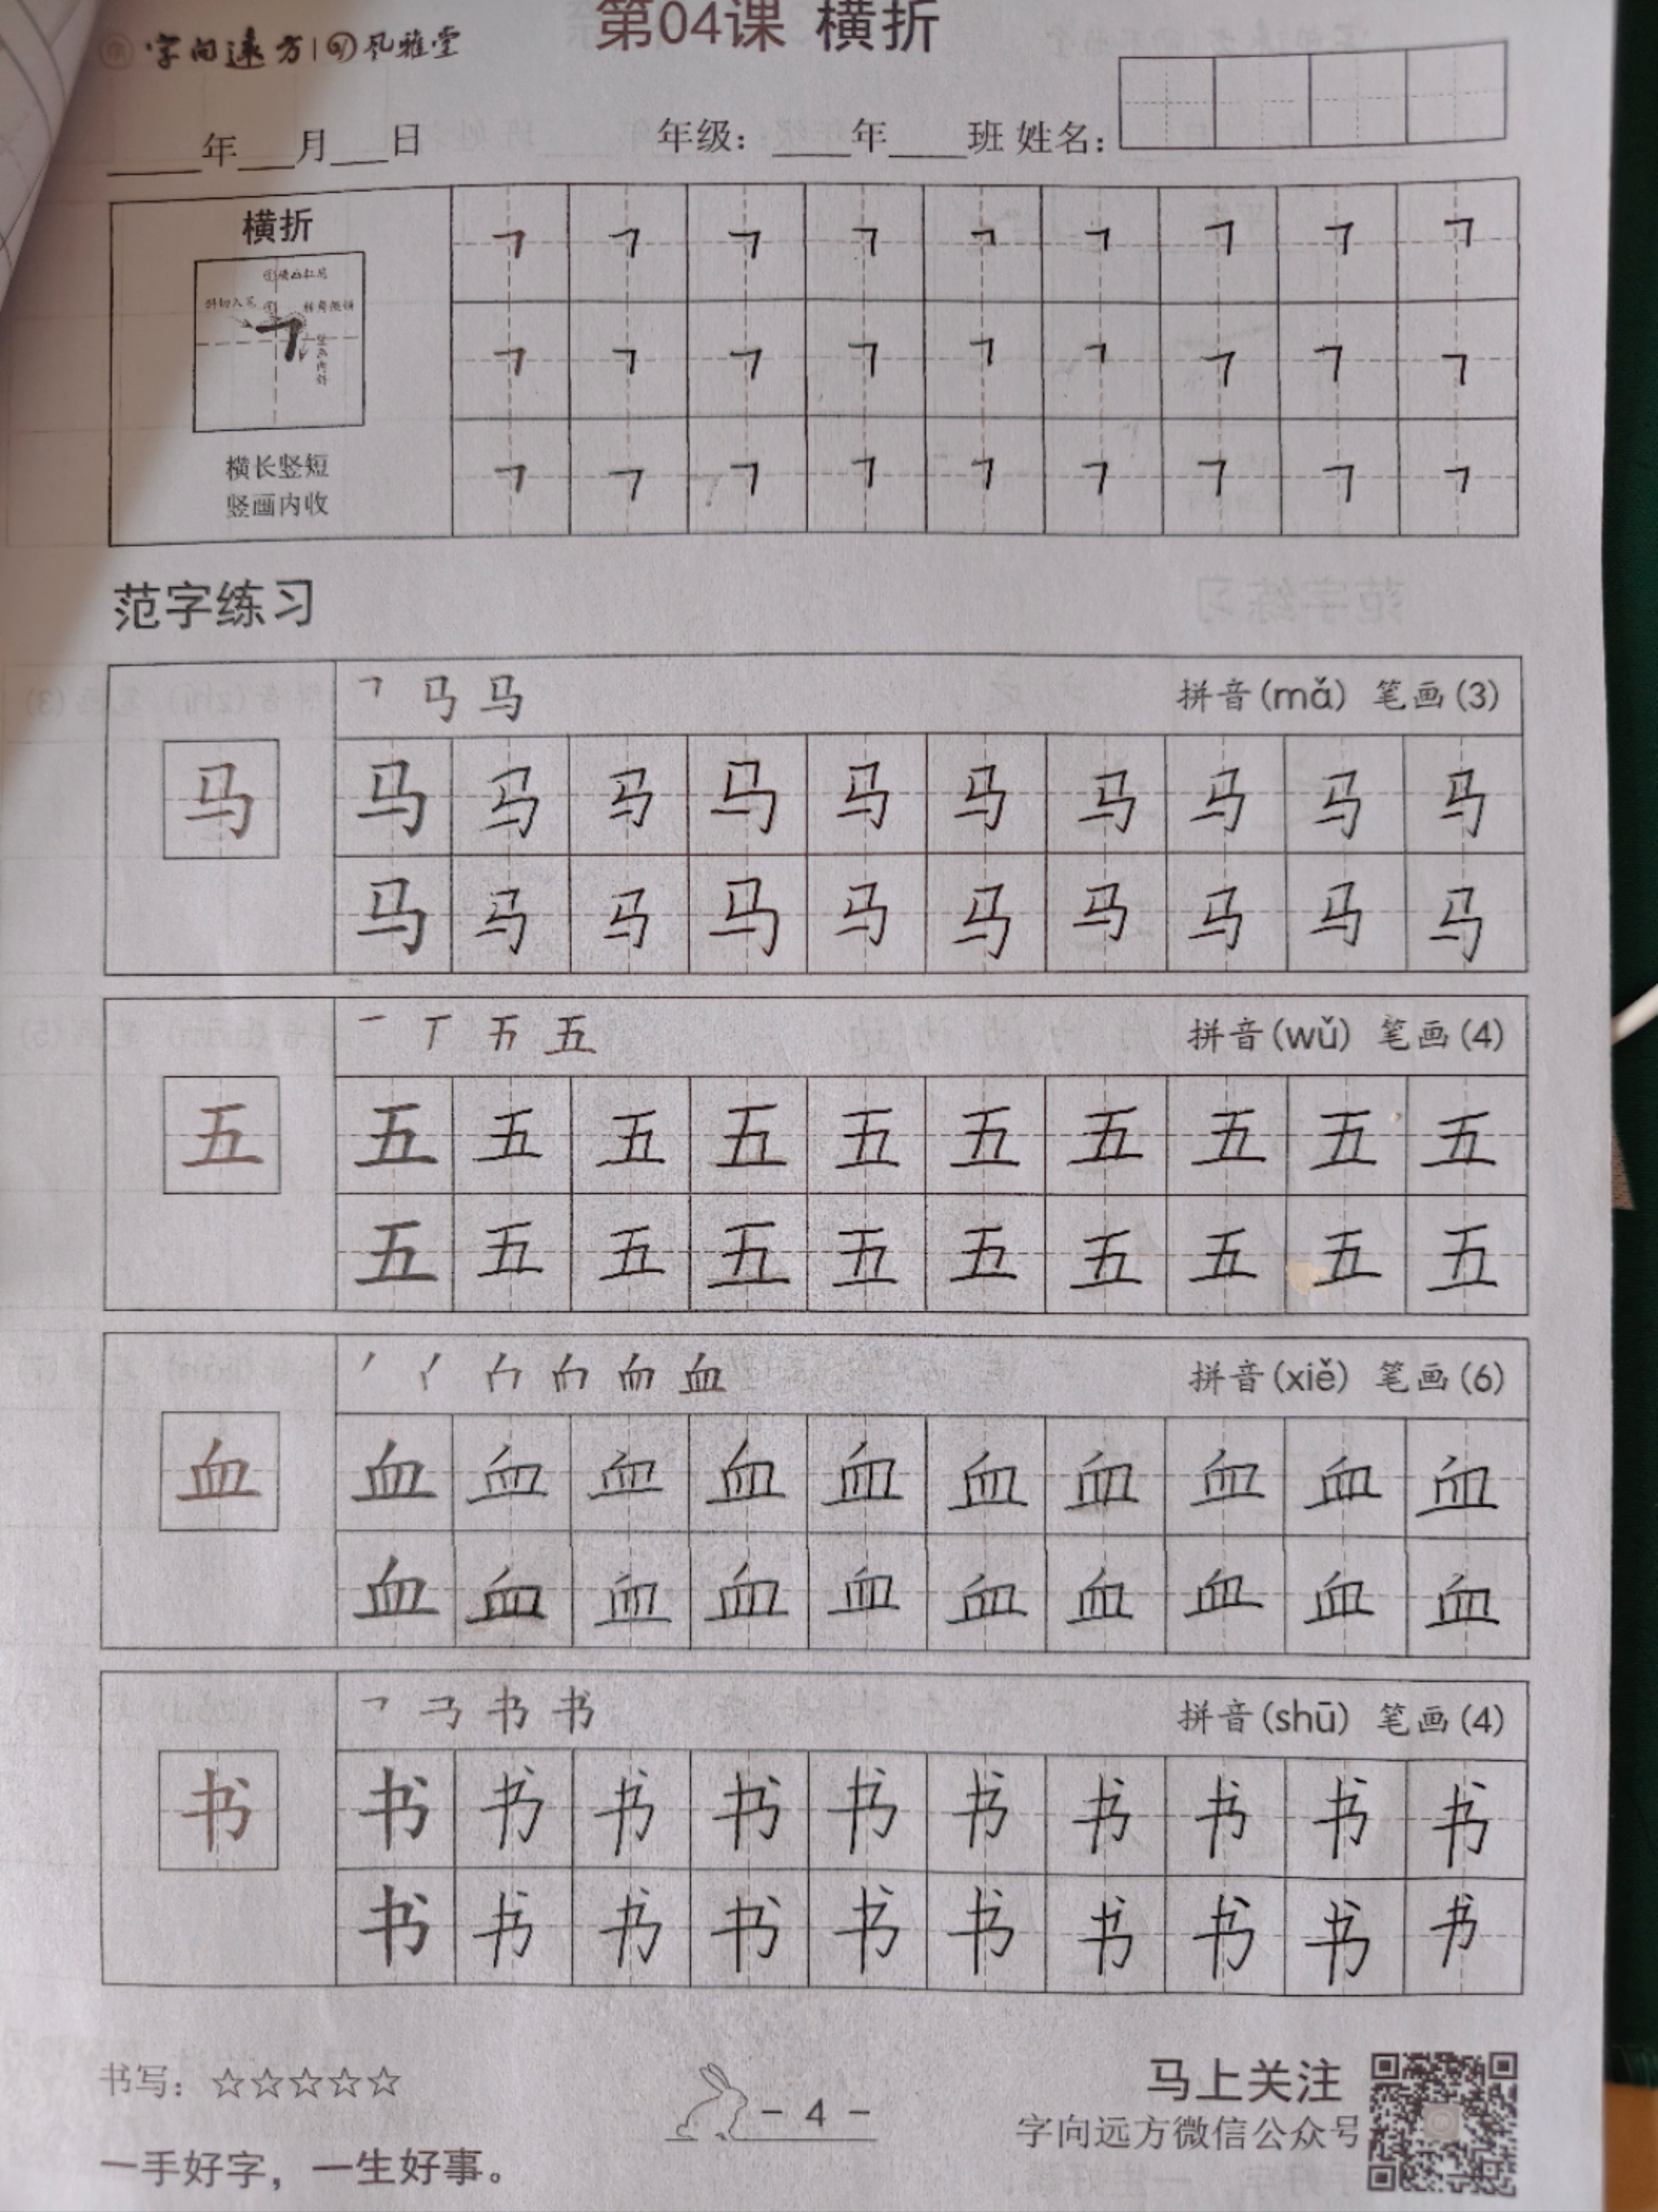 第04课 横折
字向远方 风雅堂
____年___月___日 年级：____年____班 姓名：
横折
①横画扛肩
斜切入笔
横长竖短
竖画内收
㇕ ㇕ ㇕ ㇕ ㇕ ㇕ ㇕ ㇕ ㇕
㇕ ㇕ ㇕ ㇕ ㇕ ㇕ ㇕ ㇕ ㇕
㇕ ㇕ ㇕ ㇕ ㇕ ㇕ ㇕ ㇕ ㇕
范字练习
马 拼音(mǎ) 笔画(3)
马
马 马 马 马 马 马 马 马 马 马
马 马 马 马 马 马 马 马 马 马
一 丅 五 拼音(wǔ) 笔画(4)
五
五 五 五 五 五 五 五 五 五 五
五 五 五 五 五 五 五 五 五 五
血 拼音(xiě) 笔画(6)
血
血 血 血 血 血 血 血 血 血 血
血 血 血 血 血 血 血 血 血 血
书 拼音(shū) 笔画(4)
书
书 书 书 书 书 书 书 书 书 书
书 书 书 书 书 书 书 书 书 书
书写：☆☆☆☆☆
一手好字，一生好事。
- 4 -
马上关注
字向远方微信公众号